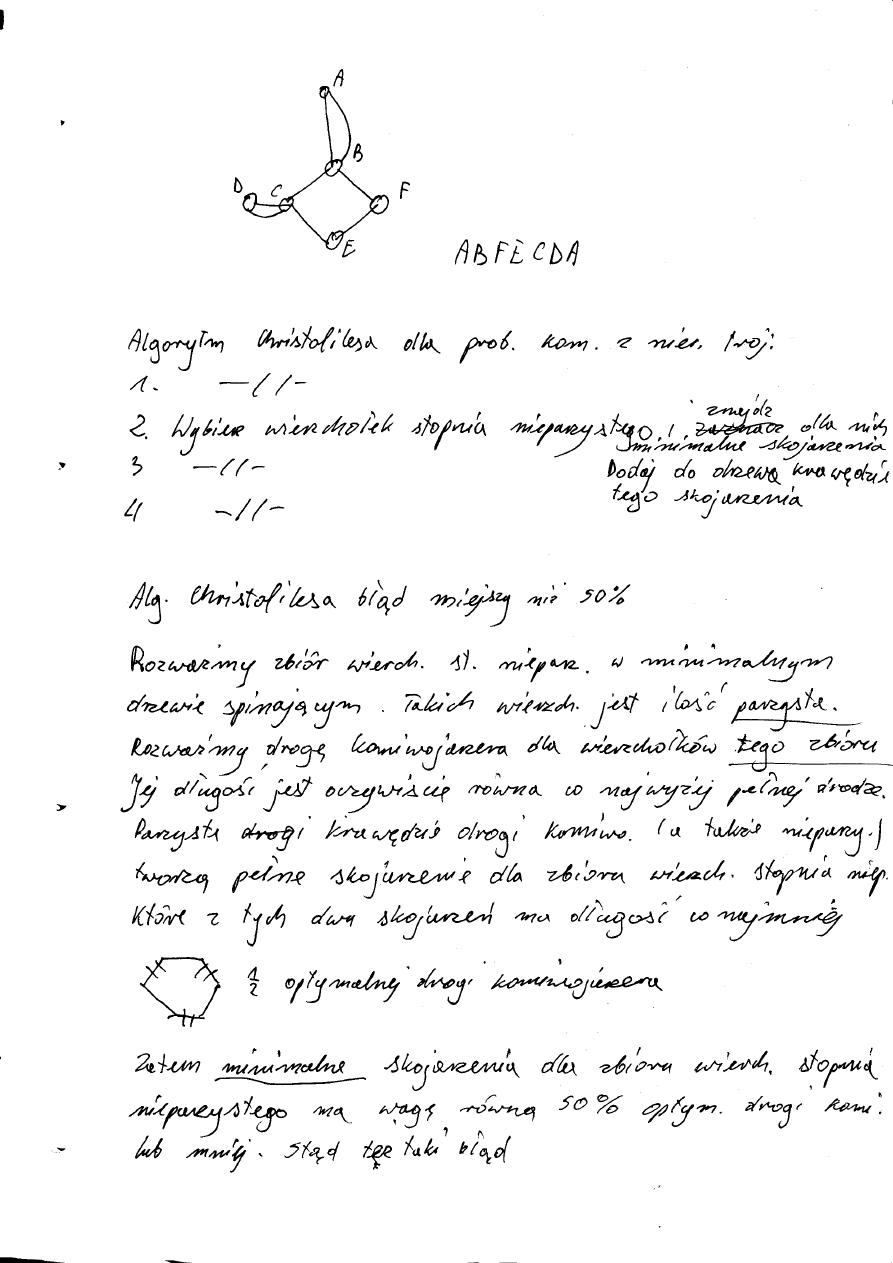 A
B
D C F
E
ABFECDA
Algorytm Christofilesa dla prob. kom. z nier. trój.
1. —//—
2. Wybierz wierzchołek stopnia nieparzystego i znajdź dla nich
minimalne skojarzenia
Dodaj do drzewa krawędzie
tego skojarzenia
3 —//—
4 —//—
Alg. Christofilesa błąd miejszy niż 50%
Rozważmy zbiór wierch. st. niepaz. w minimalnym
drzewie spinającym. Takich wierzch. jest ilość parzysta.
Rozważmy drogę komiwojażera dla wierzchołków tego zbioru
Jej długość jest oczywiście równa co najwyżej pełnej drodze.
Parzyste krawędzie drogi komiwo. (a także nieparzy.)
tworzą pełne skojarzenie dla zbioru wierzch. stopnia niep.
Któreś z tych dwu skojarzeń ma długość co najmniej
1/2 optymalnej drogi komiwojażera
Zatem minimalne skojarzenia dla zbioru wierch. stopnia
nieparzystego ma wagę równą 50% optym. drogi komi.
lub mniej. Stąd też taki błąd